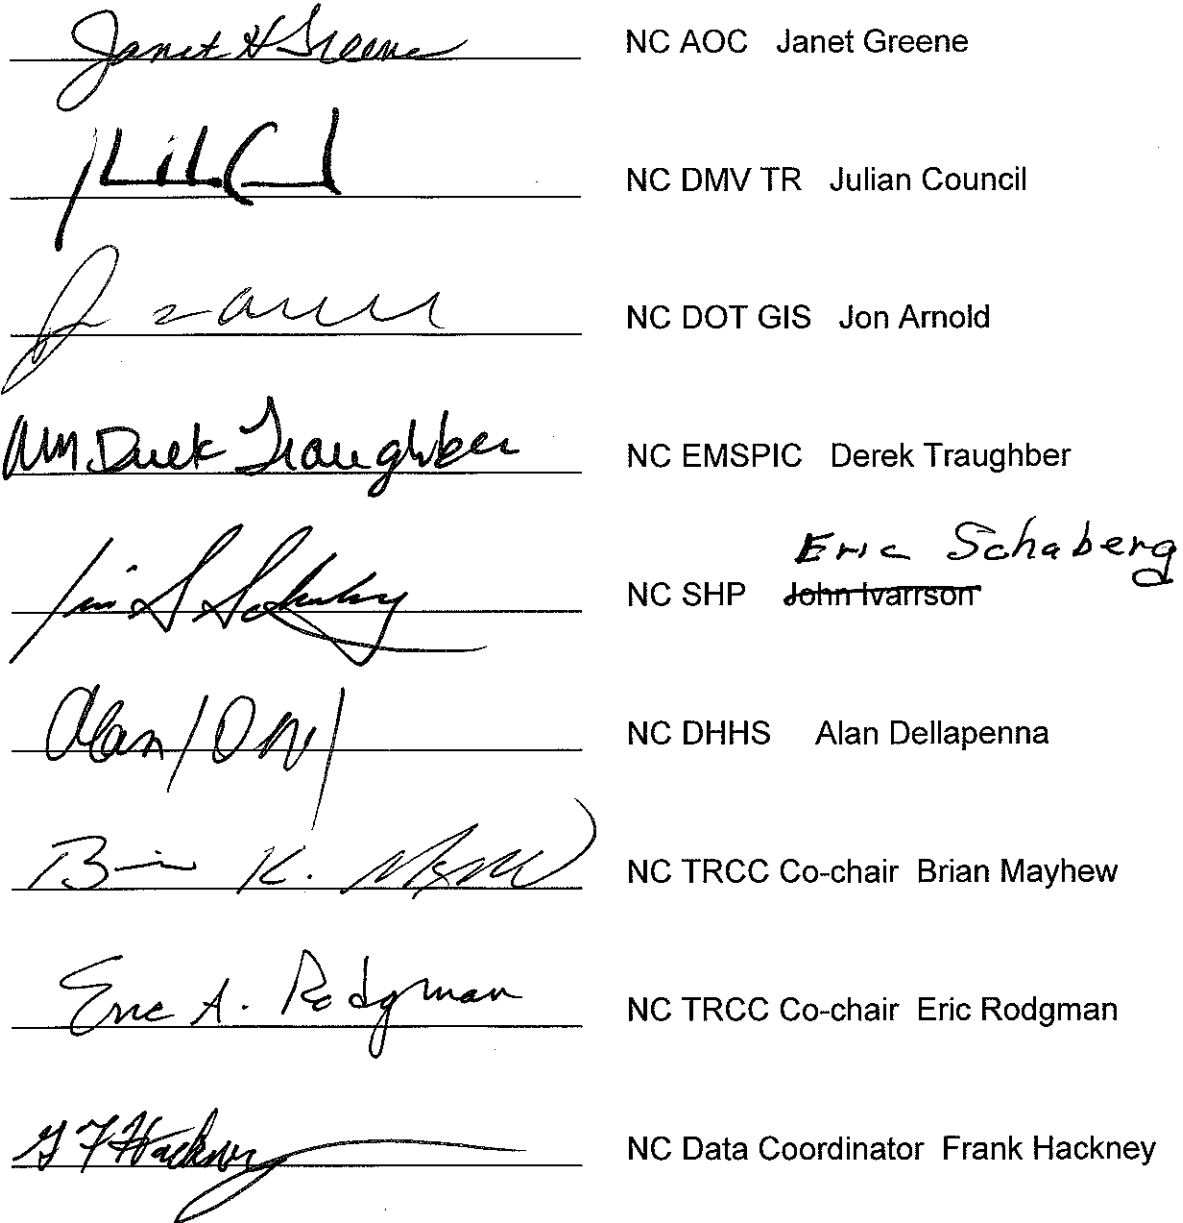 Janet H Greene NC AOC Janet Greene
NC DMV TR Julian Council
NC DOT GIS Jon Arnold
Wm. Derek Traughber NC EMSPIC Derek Traughber
Eric Schaberg
NC SHP John Ivarrson
Alan NC DHHS Alan Dellapenna
Brian K. NC TRCC Co-chair Brian Mayhew
Eric A. Rodgman NC TRCC Co-chair Eric Rodgman
G F Hackney NC Data Coordinator Frank Hackney